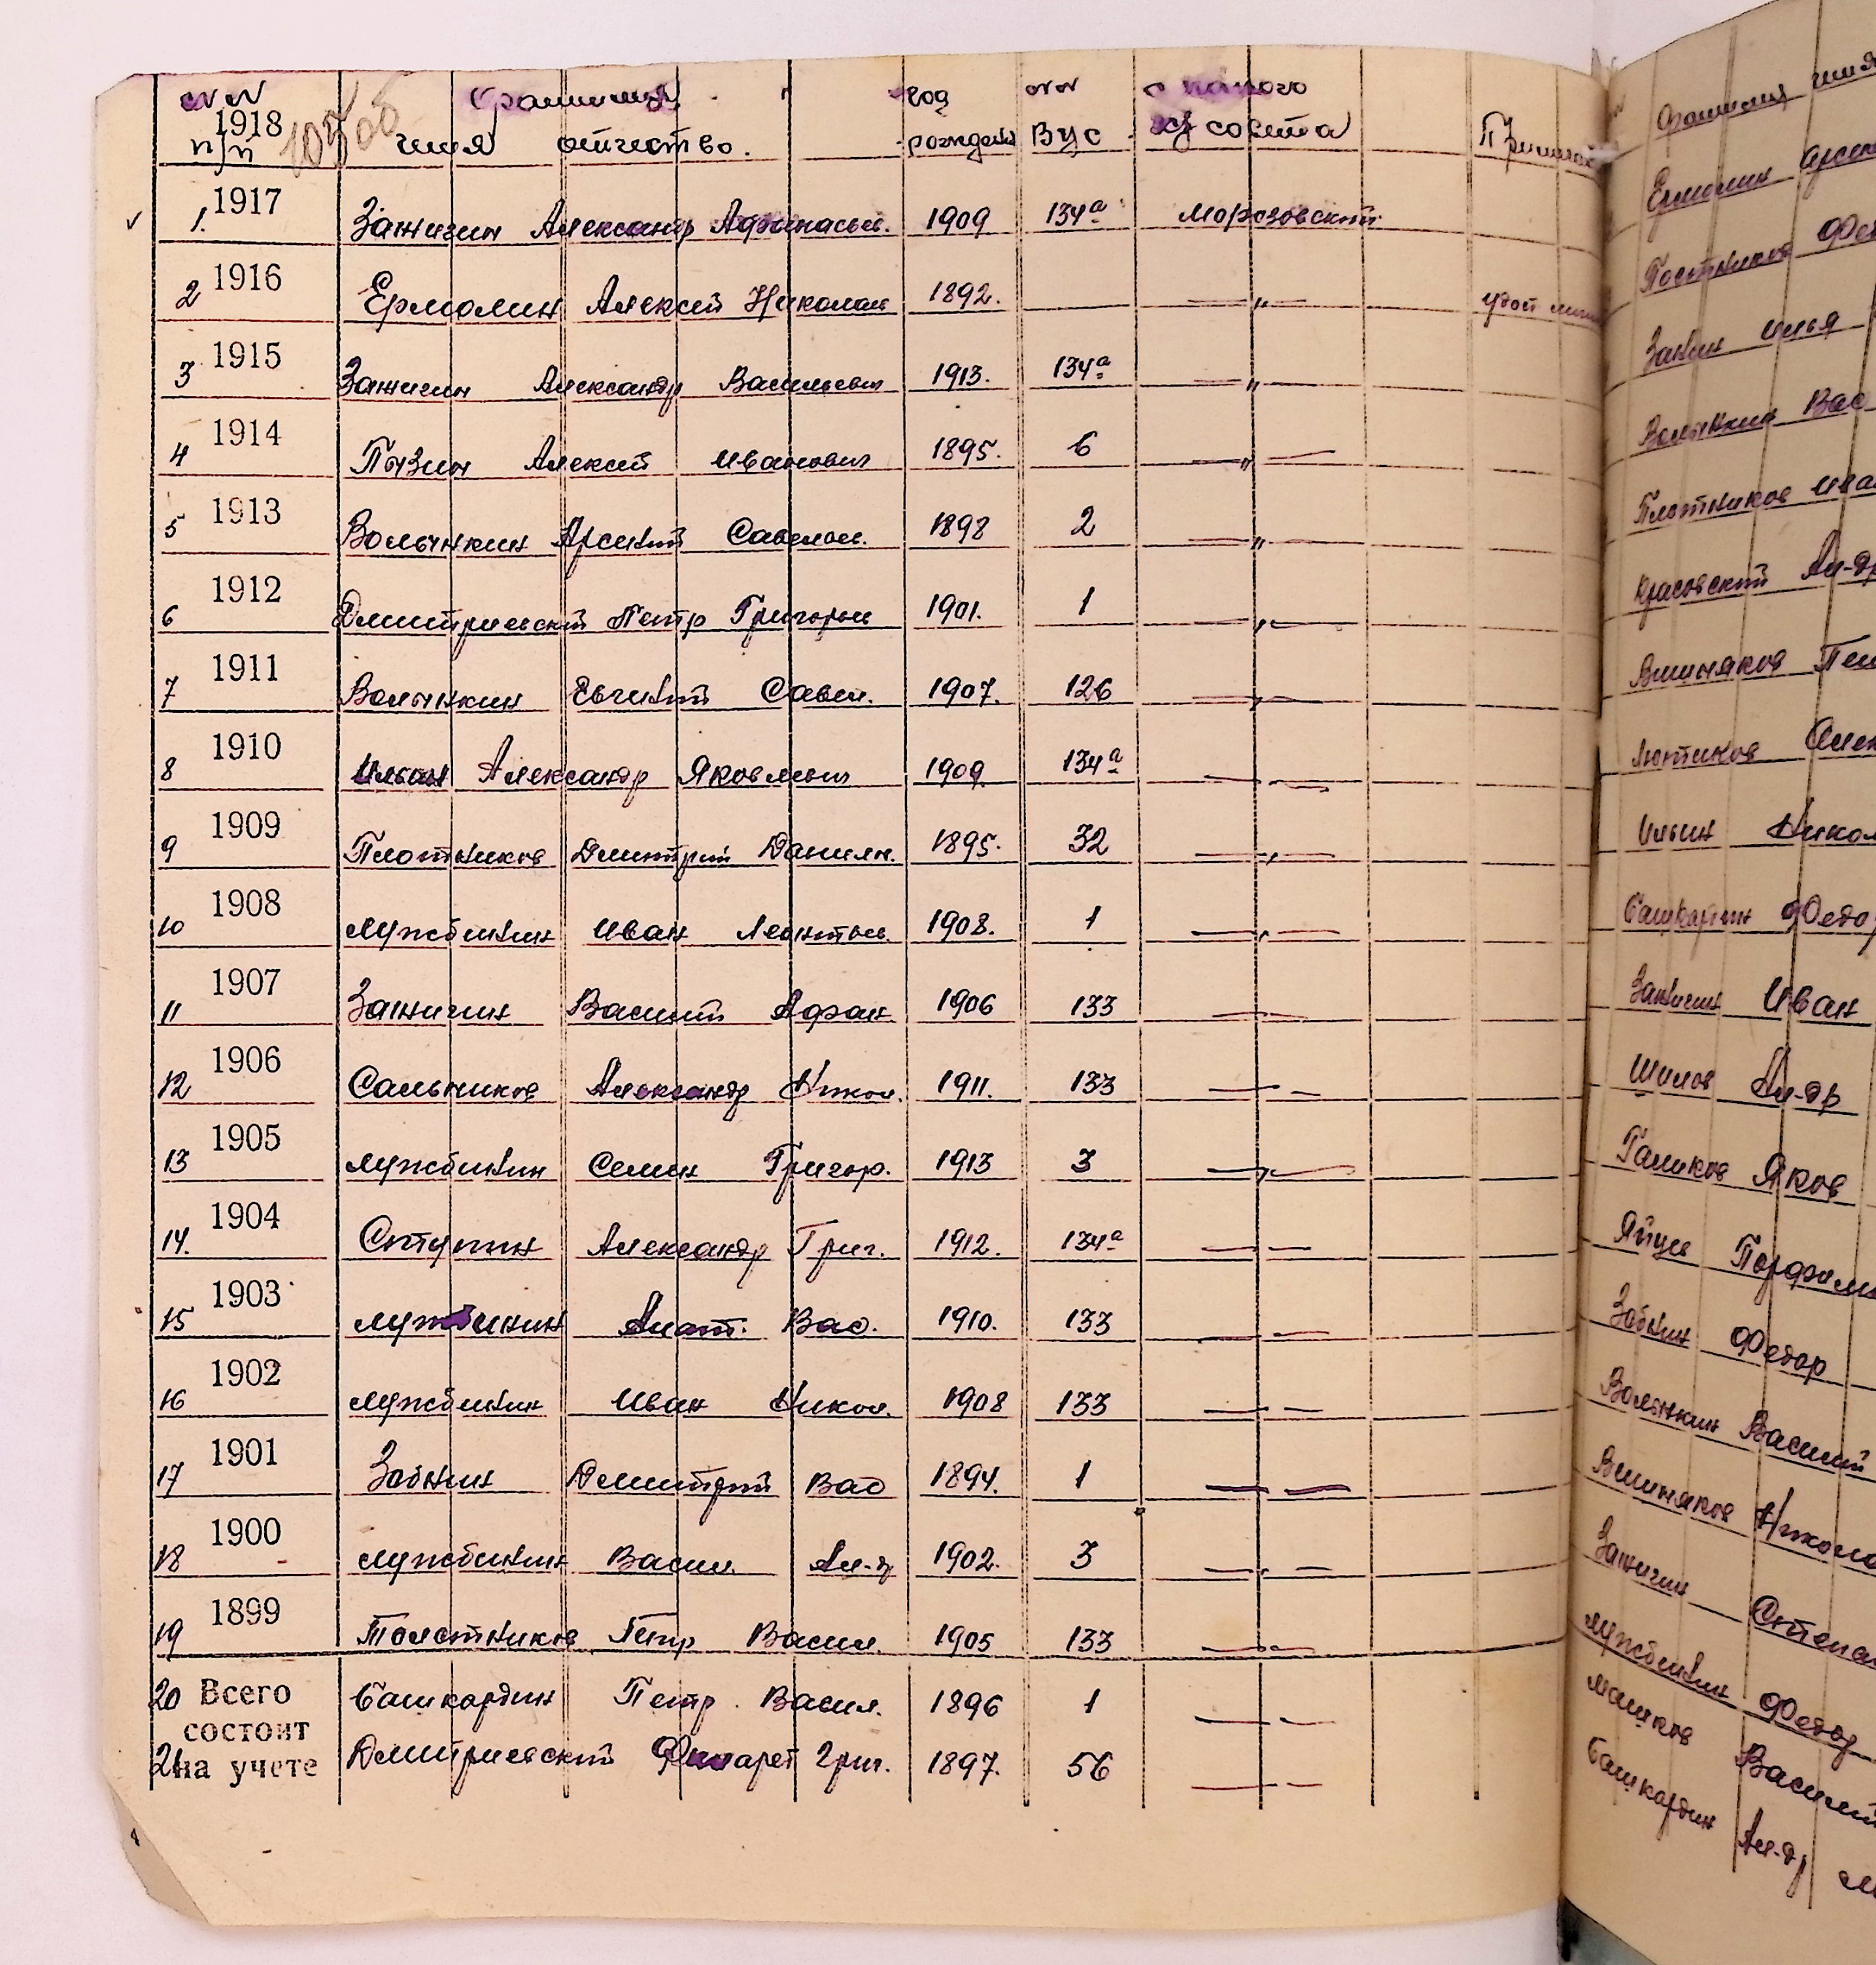 №№ фамилия год №№ с какого
1918 105об
п/п имя отчество. рождения ВУС с/совета Примечан
1. 1917 Зажигин Александр Афанасьев. 1909 134а Морозовский
2 1916 Ермолин Алексей Николаев 1892. —"—
3 1915 Зажигин Александр Васильевич 1913. 134а —"—
4 1914 Пызин Алексей Иванович 1895. 6 —"—
5 1913 Волынкин Арсений Савельев. 1898 2 —"—
6 1912 Дмитриевский Петр Григорьев 1901. 1 —"—
7 1911 Волынкин Евгений Савел. 1907. 126 —"—
8 1910 Ильин Александр Яковлевич 1909 134а —"—
9 1909 Плотников Дмитрий Данилн. 1895. 32 —"—
10 1908 Мужбинин Иван Леонтьев. 1908. 1 —"—
11 1907 Зажигин Василий Афан 1906 133 —"—
12 1906 Сальников Александр Никол. 1911. 133 —"—
13 1905 Мужбинин Семен Григор. 1913 3 —"—
14. 1904 Ступин Александр Григ. 1912. 134а —"—
15 1903 Мужбинин Анат. Вас. 1910. 133 —"—
16 1902 Мужбинин Иван Никол. 1908 133 —"—
17 1901 Забнин Дмитрий Вас 1894. 1 —"—
18 1900 Мужбинин Васил. Ал-др 1902. 3 —"—
19 1899 Плотников Петр Васил. 1905 133 —"—
20 Всего Башкардин Петр Васил. 1896 1 —"—
состоит
21 на учете Дмитриевский Филарет Григ. 1897. 56 —"—
фамилия имя
Ермолин Арсен
Постников Фе
Забнин Илья
Волынкин Вас
Плотников Ива
Красовский Ал-др
Вишняков Пе
Лютиков Алек
Ильин Никол
Башкардин Федор
Зажигин Иван
Шилов Ал-др
Галиков Яков
Порфили
Забнин Федор
Волынкин Василий
Вишняков Никола
Зажигин Степа
Мужбинин Федор
Машков Василий
Башкардин Ал-др